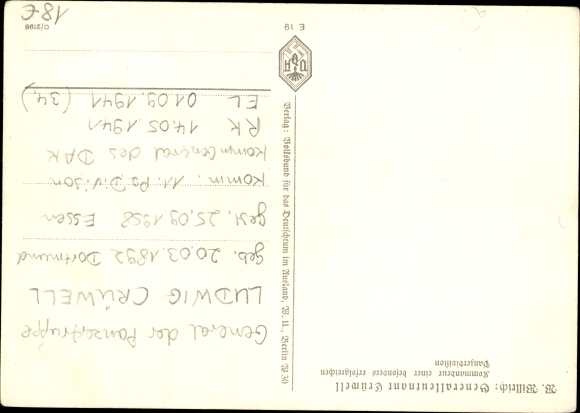 W. Willrich: Generalleutnant Crüwell
Kommandeur einer besonders erfolgreichen
Panzerdivision
Verlag: Volksbund für das Deutschtum im Ausland, W. U., Berlin W 30
E 19
C/2196
18€
General der Panzertruppe
LUDWIG CRÜWELL
geb. 20.03.1892 Dortmund
gest. 25.09.1958 Essen
Komm. 11. Pz Division
Komm General des DAK
RK 14.05.1941
EL 01.09.1941 (34.)